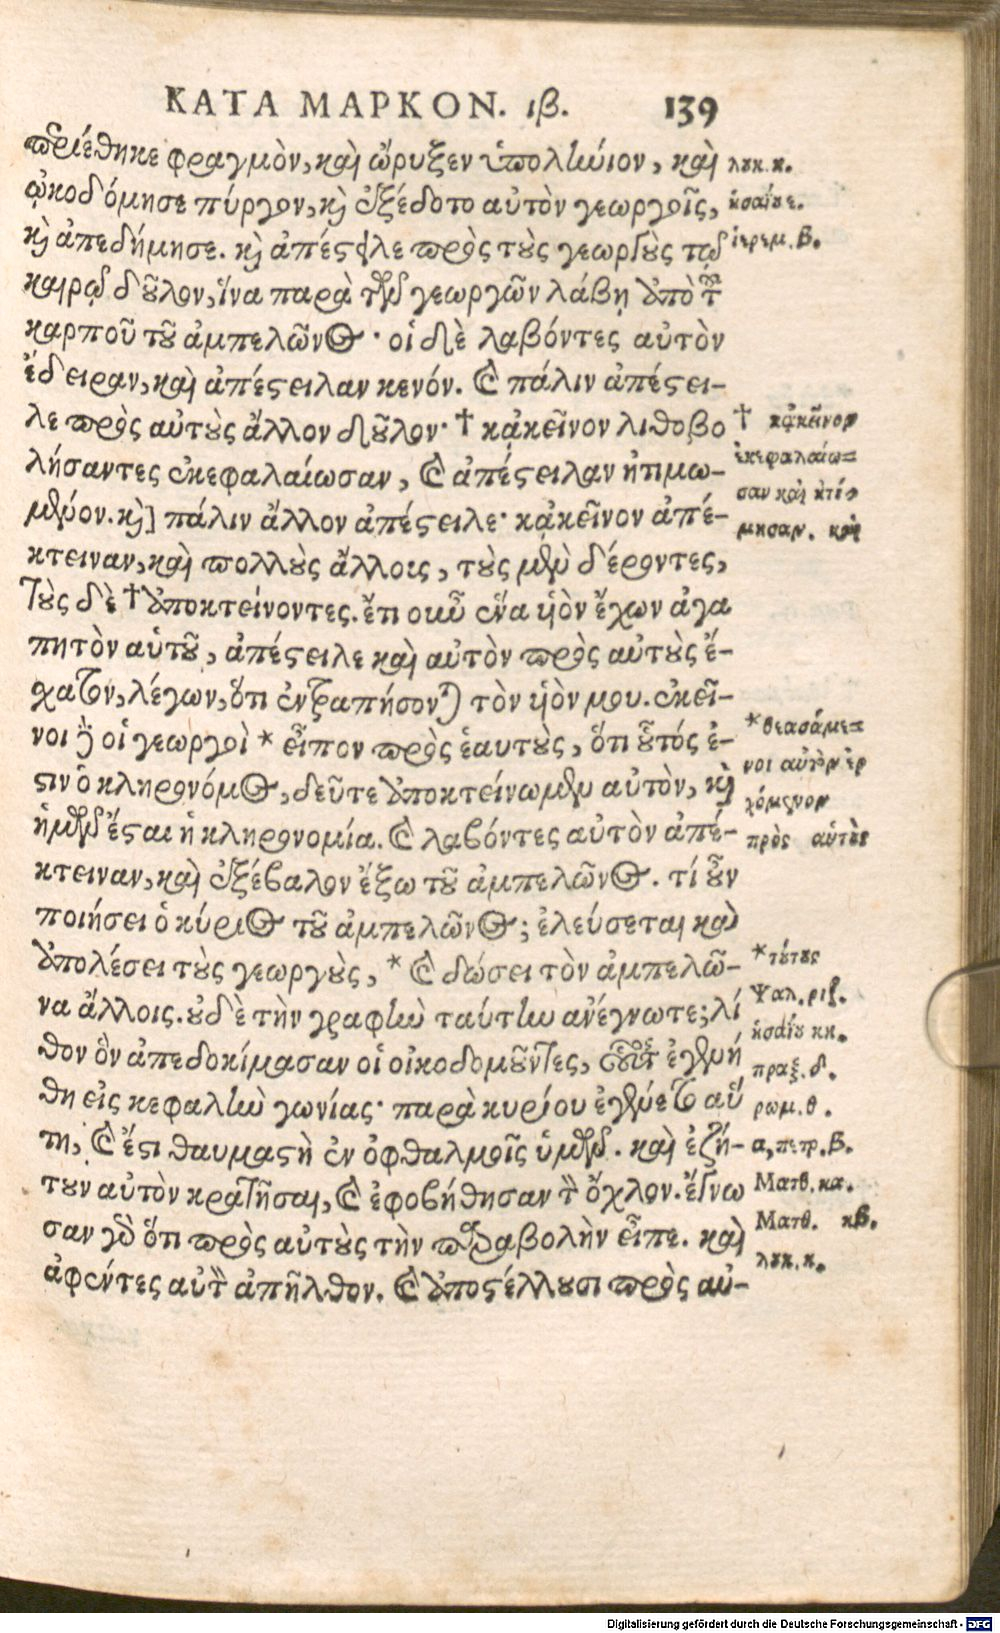 ΚΑΤΑ ΜΑΡΚΟΝ. ιβ. 139
περιέθηκε φραγμὸν, καὶ ὤρυξεν ὑπολήνιον, καὶ
ᾠκοδόμησε πύργον, καὶ ἐξέδοτο αὐτὸν γεωργοῖς,
καὶ ἀπεδήμησε. καὶ ἀπέστειλε πρὸς τοὺς γεωργοὺς τῷ
καιρῷ δοῦλον, ἵνα παρὰ τῶν γεωργῶν λάβῃ ἀπὸ τοῦ
καρποῦ τοῦ ἀμπελῶνος· οἱ δὲ λαβόντες αὐτὸν
ἔδειραν, καὶ ἀπέστειλαν κενόν. καὶ πάλιν ἀπέστει-
λε πρὸς αὐτοὺς ἄλλον δοῦλον· † κᾀκεῖνον λιθοβο
λήσαντες ἐκεφαλαίωσαν, καὶ ἀπέστειλαν ἠτιμω-
μένον. καὶ] πάλιν ἄλλον ἀπέστειλε· κᾀκεῖνον ἀπέ-
κτειναν, καὶ πολλοὺς ἄλλους, τοὺς μὲν δέροντες,
τοὺς δὲ † ἀποκτείνοντες. ἔτι οὖν ἕνα υἱὸν ἔχων ἀγα
πητὸν αὑτοῦ, ἀπέστειλε καὶ αὐτὸν πρὸς αὐτοὺς ἔ-
χατον, λέγων, ὅτι ἐντραπήσονται τὸν υἱὸν μου. ἐκεῖ-
νοι δὲ οἱ γεωργοὶ * εἶπον πρὸς ἑαυτοὺς, ὅτι οὗτός ἐ-
στιν ὁ κληρονόμος, δεῦτε ἀποκτείνωμεν αὐτὸν, καὶ
ἡμῶν ἔσται ἡ κληρονομία. καὶ λαβόντες αὐτὸν ἀπέ-
κτειναν, καὶ ἐξέβαλον ἔξω τοῦ ἀμπελῶνος. τί οὖν
ποιήσει ὁ κύριος τοῦ ἀμπελῶνος; ἐλεύσεται καὶ
ἀπολέσει τοὺς γεωργοὺς, * καὶ δώσει τὸν ἀμπελῶ-
να ἄλλοις. οὐδὲ τὴν γραφὴν ταύτην ἀνέγνωτε; λί
θον ὃν ἀπεδοκίμασαν οἱ οἰκοδομοῦντες, οὗτος ἐγενή
θη εἰς κεφαλὴν γωνίας· παρὰ κυρίου ἐγένετο αὕ
τη, καὶ ἔστι θαυμαστὴ ἐν ὀφθαλμοῖς ὑμῶν. καὶ ἐζή-
τουν αὐτὸν κρατῆσαι, καὶ ἐφοβήθησαν τὸν ὄχλον. ἔγνω
σαν γὰρ ὅτι πρὸς αὐτοὺς τὴν παραβολὴν εἶπε. καὶ
ἀφέντες αὐτὸν ἀπῆλθον. καὶ ἀποστέλλουσι πρὸς αὐ-
λουκ. κ.
ἡσαΐου ε.
ἱερεμ. β.
† κᾀκεῖνον
ἐκεφαλαίω=
σαν καὶ ἠτί-
μησαν. καὶ
* θεασάμε=
νοι αὐτὸν ἐρ
χόμενον
πρὸς αὑτοὺς
* τούτους
Ψαλ. ριζ.
ἡσαΐου κη.
πραξ. δ.
ρωμ. θ.
α, πετρ. β.
Ματθ. κα.
Ματθ. κβ.
λουκ. κ.
Digitalisierung gefördert durch die Deutsche Forschungsgemeinschaft - DFG